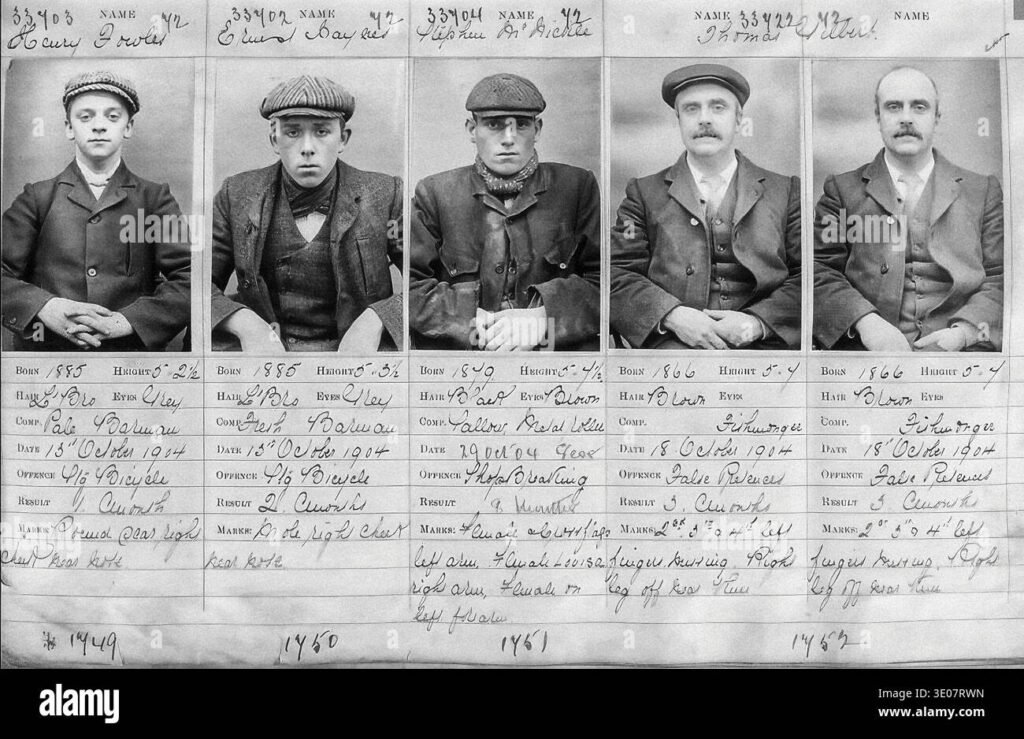 33403 NAME 42
Henry Fowles
33402 NAME 42
Ernest
33404 NAME 42
Stephen
NAME 33422 42
Thomas
NAME
Born 1885 Height 5-2½
Hair Lt Bro Eyes Grey
Comp. Pale Barman
Date 15th October 1904
Offence Stg Bicycle
Result 1. Cmonth
Marks: Round scar right
cheek near nose
1749
Born 1885 Height 5-3½
Hair Lt Bro Eyes Grey
Comp. Fresh Barman
Date 15th October 1904
Offence Stg Bicycle
Result 2. Cmonths
Marks: Mole right cheek
near nose
1750
Born Height 5-4½
Hair Black Eyes Brown
Comp. Sallow Metal roller
Date 29 Oct 04
Offence Shop Breaking
Result months
Marks: Female
left arm, Female Louisa
right arm, Female on
left f'arm
1751
Born 1866 Height 5-4
Hair Brown Eyes
Comp. Fishmonger
Date 18 October 1904
Offence False Pretences
Result 3. Cmonths
Marks: 2nd 3rd & 4th left
fingers missing. Right
leg off near knee
Born 1866 Height 5-4
Hair Brown Eyes
Comp. Fishmonger
Date 18th October 1904
Offence False Pretences
Result 3. Cmonths
Marks: 2nd 3rd & 4th left
fingers missing. Right
leg off near knee
1752
alamy
Image ID: 3E07RWN
www.alamy.com